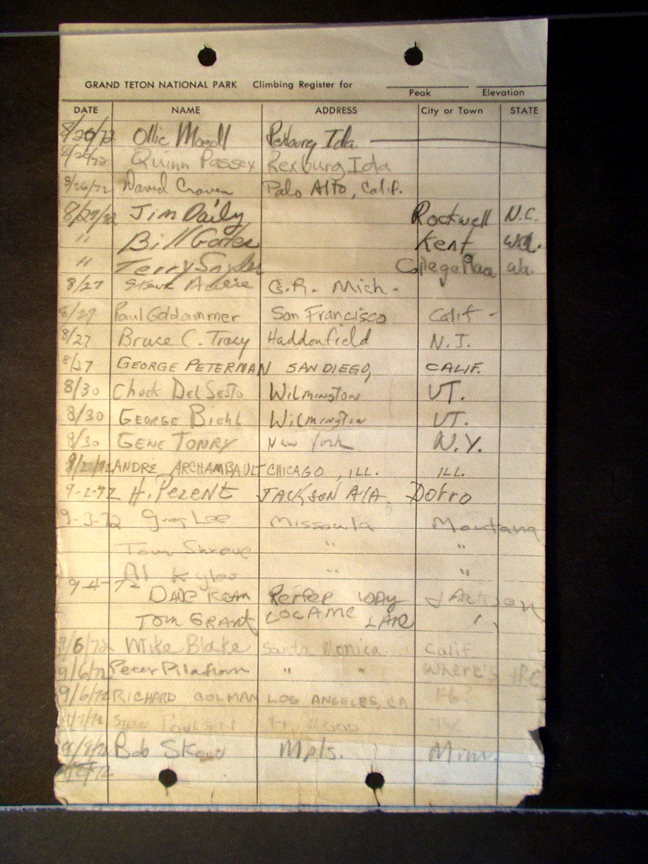 GRAND TETON NATIONAL PARK Climbing Register for
Peak Elevation
DATE NAME ADDRESS City or Town STATE
8/26/72 Ollie Rexburg Ida
8/26/72 Quinn Passey Rexburg Ida
8/26/72 David Craven Palo Alto, Calif.
8/27/72 Jim Daily Rockwell N.C.
" Bill Gates Kent Wa.
" Terry Snyder College Place Wa.
8/27 Steve G.R. Mich -
8/27 Paul Goldammer San Francisco Calif -
8/27 Bruce C. Tracy Haddonfield N.J.
8/27 GEORGE PETERMAN SAN DIEGO, CALIF.
8/30 Chuck DelSesto Wilmington VT.
8/30 GEORGE Biehl Wilmington VT.
8/30 GENE TONRY New York N.Y.
ANDRE ARCHAMBAULT CHICAGO, ILL. ILL.
9-2-72 H. Pezent JACKSON Dotro
9-3-72 Greg Lee Missoula Montana
Tom Shreve " "
Al Kyles " "
9-4-72 DAVE Jackson
TOM GRANT "
9/6/72 Mike Blake Santa Monica Calif
9/6/72 Peter " " Where's
9/6/72 RICHARD COLMAN LOS ANGELES, CA
9/7/72
9/8/72 Bob Skow Mpls. Minn.